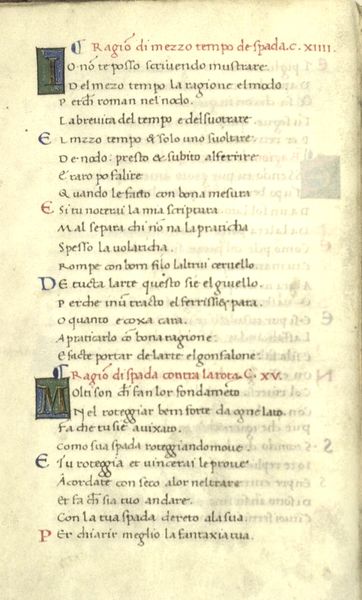 ¶ Ragiõ di mezzo tempo de spada. C. XIIII.
IO nõ te posso scrivendo mustrare.
Del mezo tempo la ragione el modo
Perch roman nel nodo.
La brevita del tempo e del suo trare.
El mezzo tempo & solo uno svoltare.
De nodo: presto & subito al ferire
E raro po falire
Quando le facto con bona mesura
Si tu noterai la mia scriptura
Mal se para chi nõ na la praticha
Spesso la volaticha.
Rompe con bom filo laltrui cervello
De tucta larte questo sie el giuello.
Perche inũ tracto el ferrissi & para.
O quanto e coxa cara.
A praticarlo cõ bona ragione:
E facte portar de larte el gonfalone:
¶ Ragiõ di spada contra la rota. C. XV.
Molti son ch fan lor fondamẽto
Nel roteggiar bem forte da ogne lato.
Fa che tu sie avixato.
Como sua spada roteggiando move.
E tu roteggia et vincerai le prove
Acordate con seco alor nel trare
Et fa ch sia tuo andare.
Con la tua spada dereto ala sua.
Per chiarir meglio la fantaxia tua.